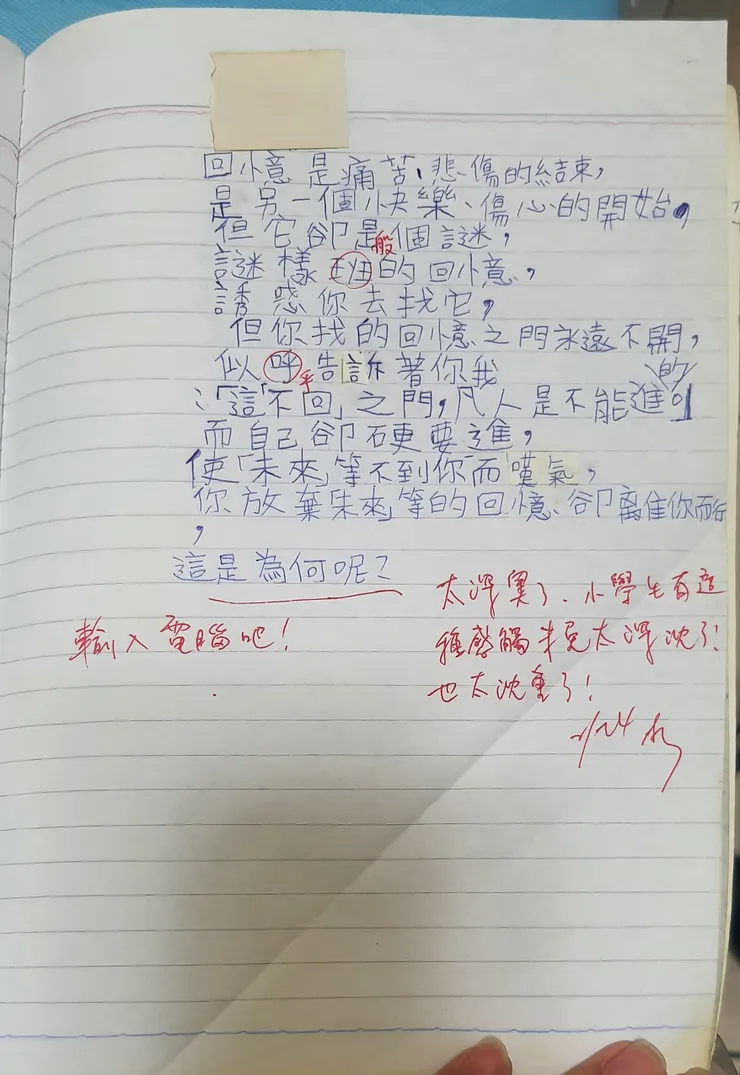 回憶是痛苦、悲傷的結束，
是另一個快樂、傷心的開始，
但它卻是個謎，
般
謎樣班的回憶，
誘惑你去找它，
但你找的回憶之門永遠不開，
似呼告訴著你我
乎
的
：「這「不回」之門，凡人是不能進。」
而自己卻硬要進，
使「未來」等不到你而嘆氣，
你放棄「未來」等的回憶、卻離隹你而行
，
這是為何呢？
太深奧了、小學生有這
輸入電腦吧！
種感觸未免太深沈了！
也太沈重了！